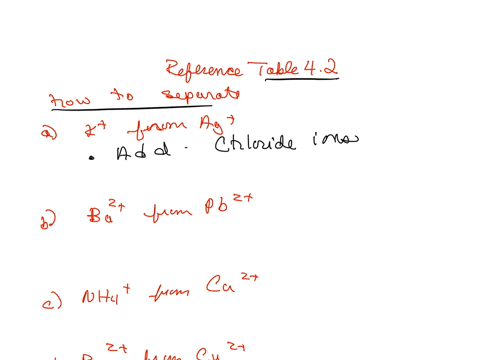 Reference Table 4.2
How to separate
a) K⁺ from Ag⁺
• Add Chloride ions
b) Ba²⁺ from Pb²⁺
c) NH4⁺ from Ca²⁺
Ba²⁺ from Cu²⁺